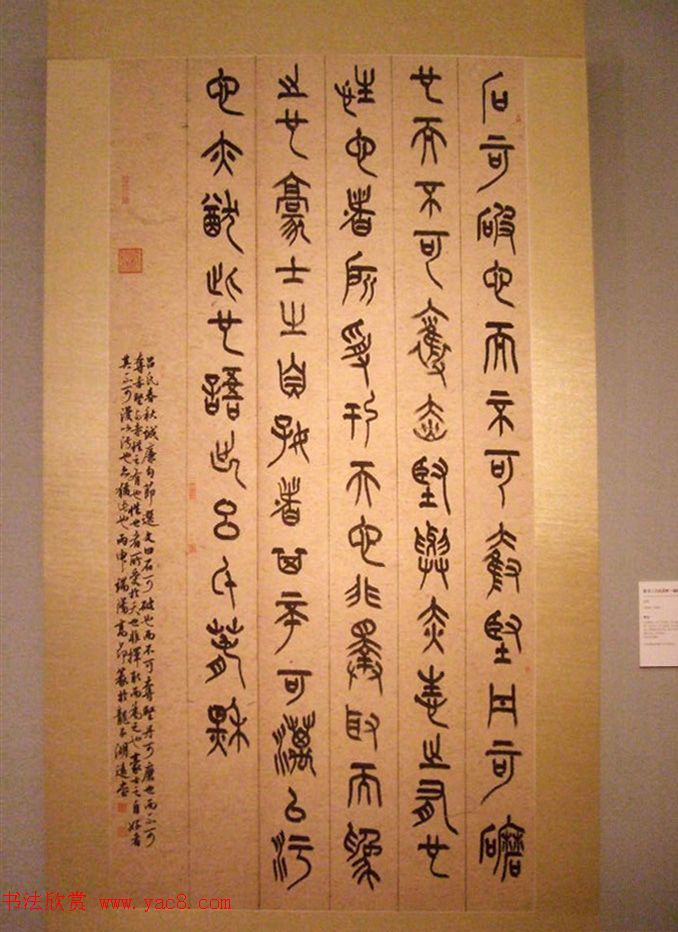 石可破也而不可奪堅丹可磨
也而不可奪赤堅與赤性之有也
性也者所受于天也非擇取而為
之也豪士之自好者其不可漫以污
也亦猶此也語出呂氏春秋
呂氏春秋誠廉句節選文曰石可破也而不可奪堅丹可磨也而不可
奪赤堅與赤性之有也性也者所受於天也非擇取而為之也豪士之自好者
其不可漫以污也亦猶此也丙申端陽篆於龍子湖
书法欣赏 www.yac8.com